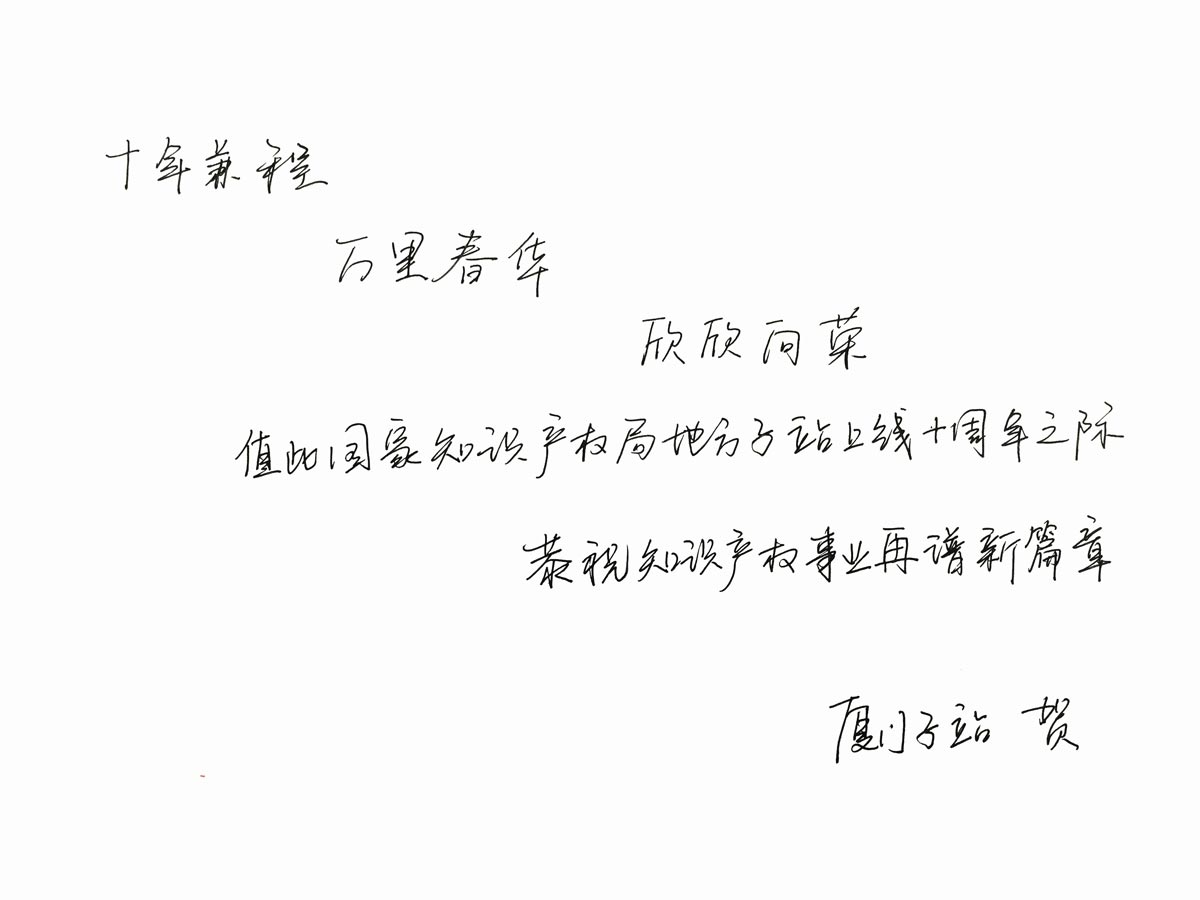 十年兼程
万里春华
欣欣向荣
值此国家知识产权局地方子站上线十周年之际
恭祝知识产权事业再谱新篇章
厦门子站 贺